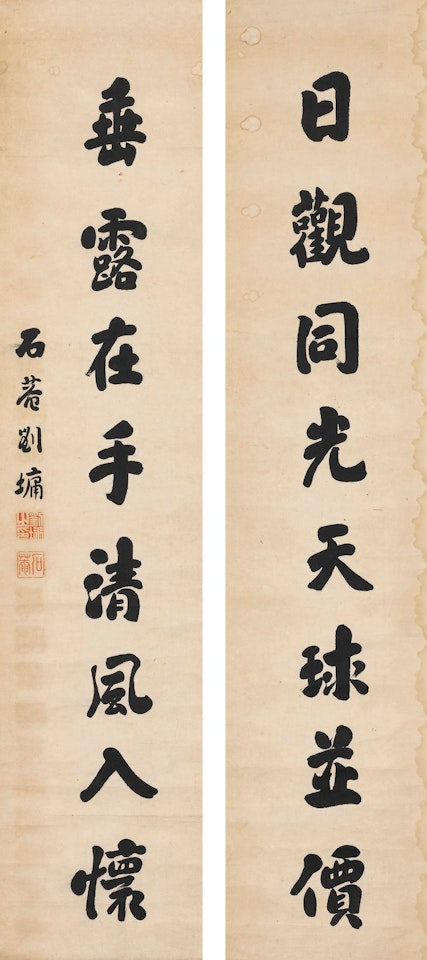 日觀同光天球並價
垂露在手清風入懷
石菴劉墉